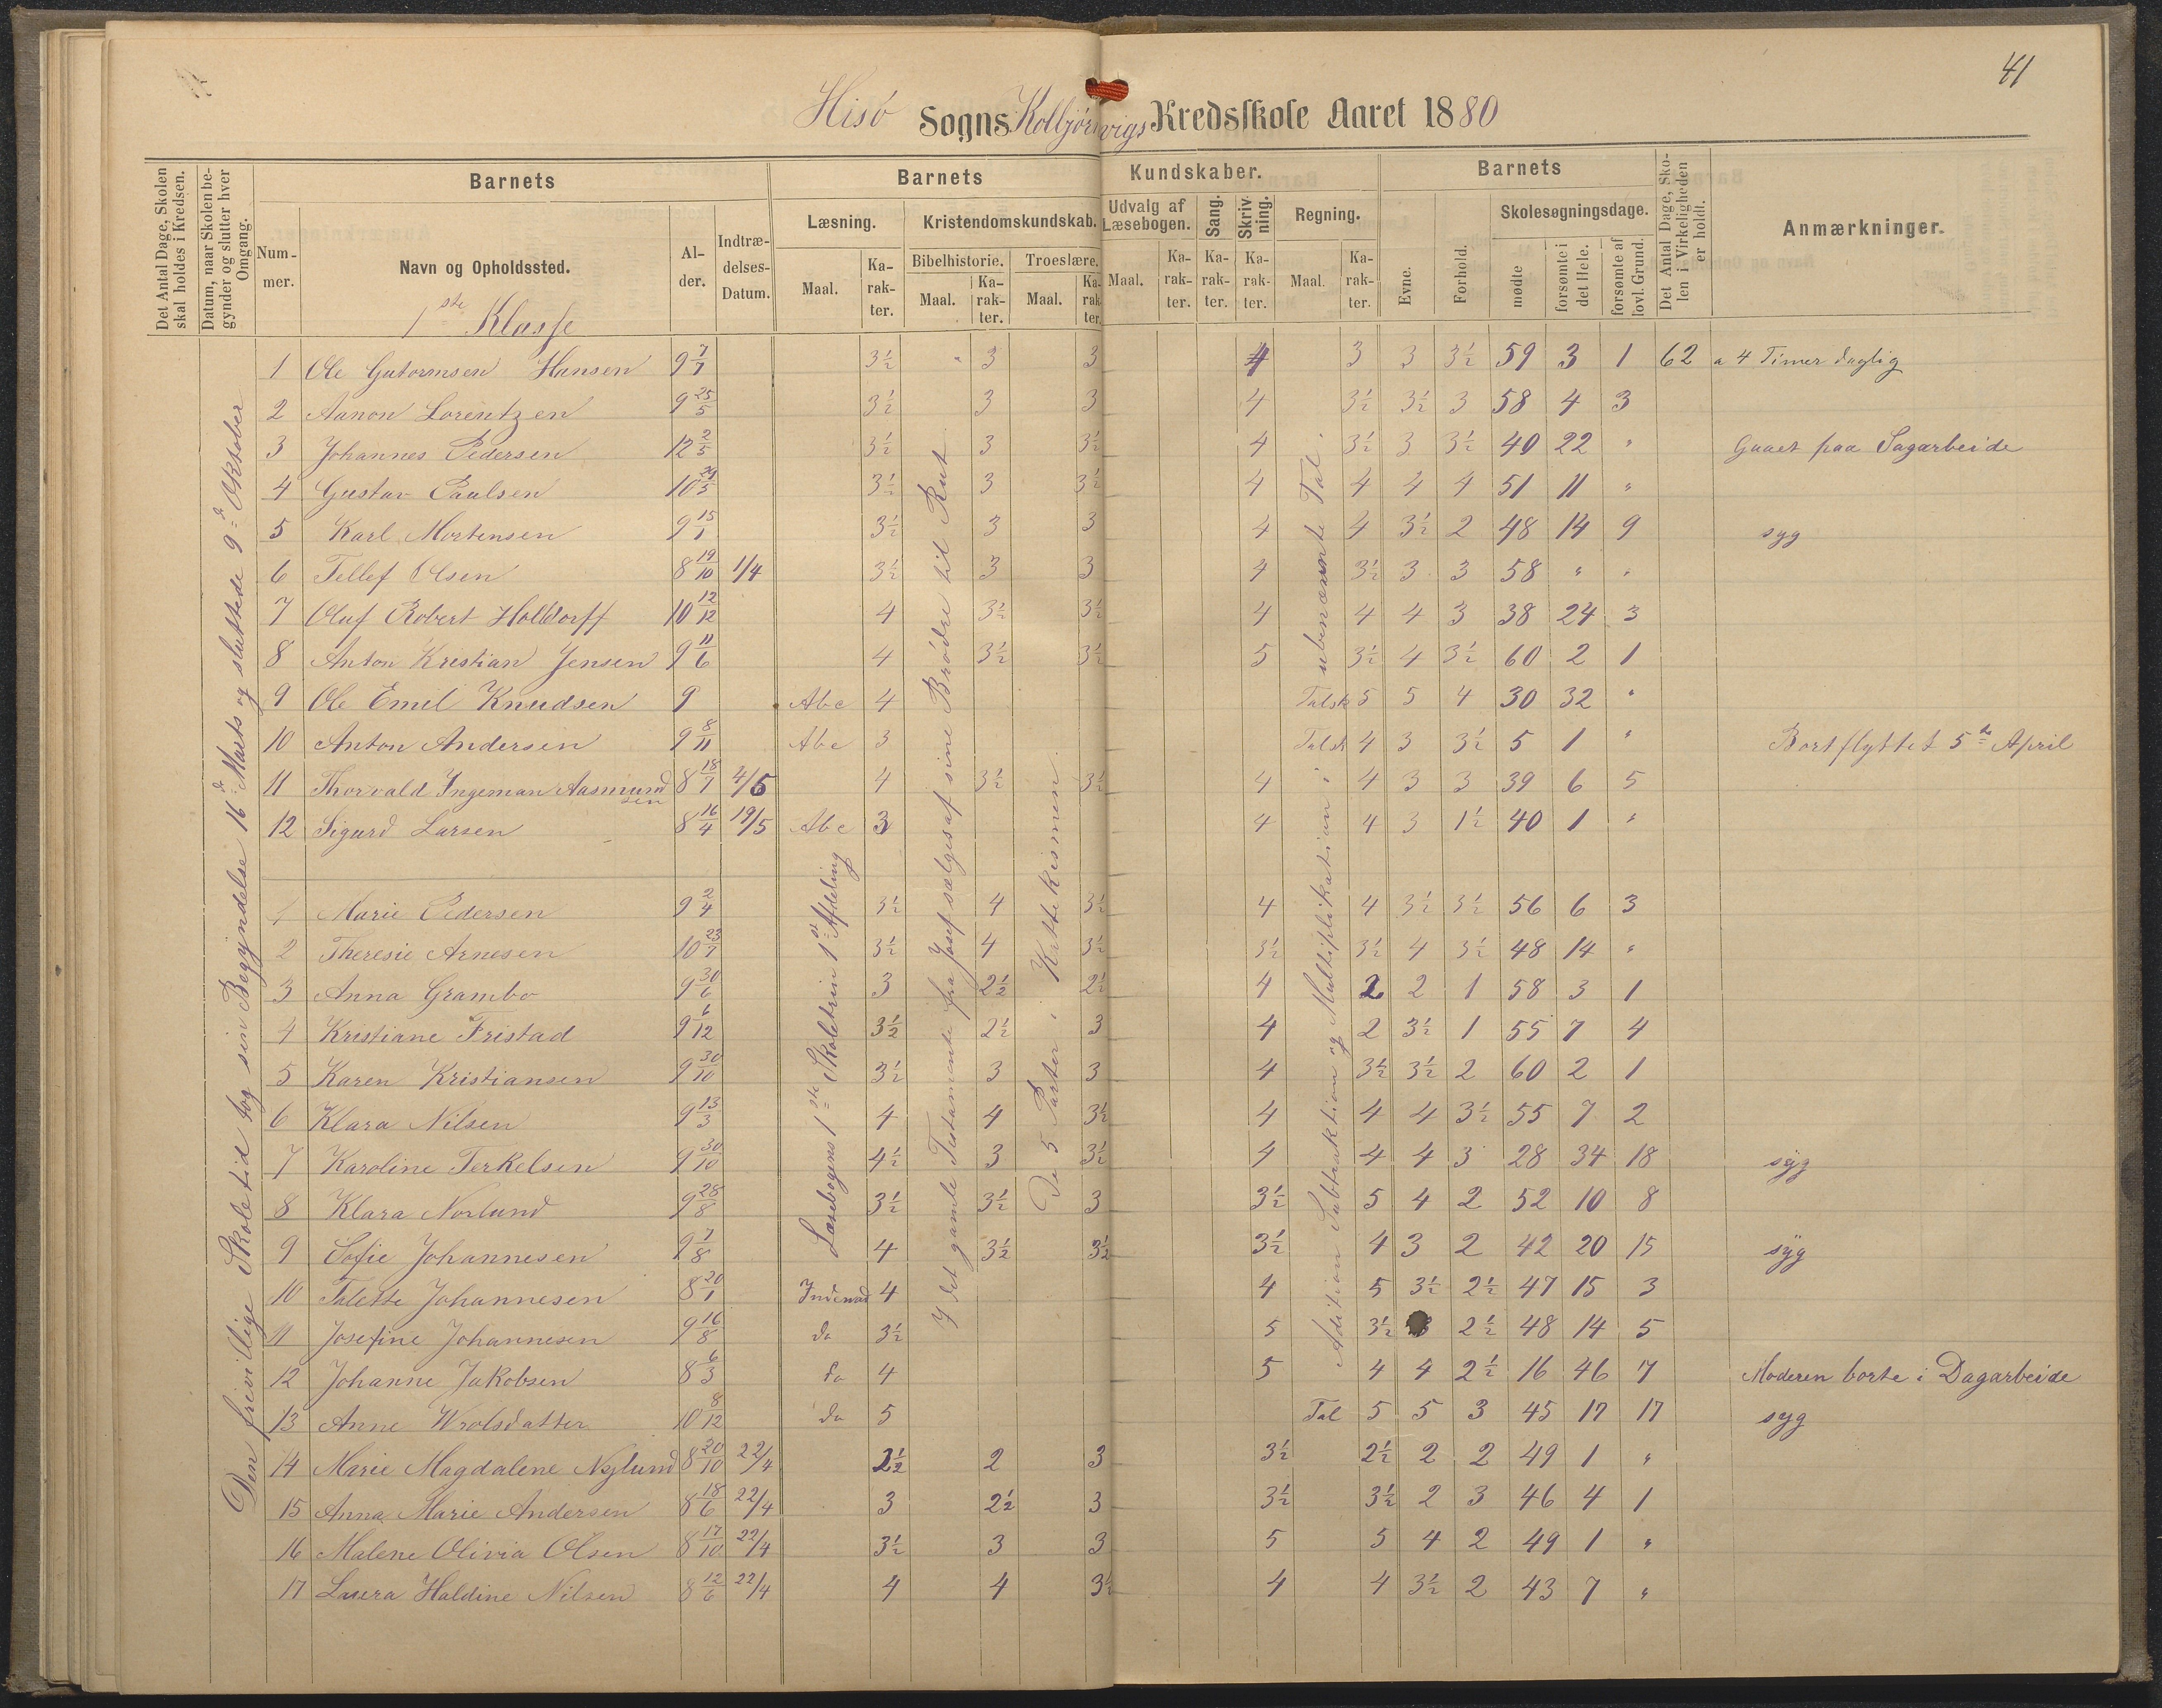 41
Hisö Sogns Kolbjørnvigs Kredsskole Aaret 1880
Det Antal Dage, Skolen skal holdes i Kredsen.
Datum, naar Skolen begynder og slutter hver Omgang.
Barnets
Barnets Kundskaber.
Barnets
Det Antal Dage, Skolen i Virkeligheden er holdt.
Anmærkninger.
Nummer.
Navn og Opholdssted.
Alder.
Indtrædelses-Datum.
Læsning.
Kristendomskundskab.
Udvalg af Læsebogen.
Sang.
Skrivning.
Regning.
Evne.
Forhold.
Skolesøgningsdage.
Bibelhistorie.
Troeslære.
Maal.
Karakter.
Maal.
Karakter.
Maal.
Karakter.
Maal.
Karakter.
Karakter.
Karakter.
Maal.
Karakter.
mødte
forsømte i det Hele.
forsømte af lovl. Grund.
1ste Klasse
Den frivillige Skoletid tog sin Begyndelse 16d Marts og sluttede 9d Oktober
Læsebogens 1ste Skoletrin 1ste Afdeling
I det gamle Testamente fra Josef sælges af sine Brødre til Rut
De 5 Parter i Kattekismen
Adition Subtraktion og Multiplikation i ubenævnte Tal.
1 Ole Gutormsen Hansen 9 7/7 3½ 3 3 4 3 3 3½ 59 3 1 62 a 4 Timer daglig
2 Aanon Lorentzen 9 25/5 3½ 3 3 4 3½ 3½ 3 58 4 3
3 Johannes Pedersen 12 2/5 3½ 3 3½ 4 3½ 3 3½ 40 22 " Gaaet paa Sagarbeide
4 Gustav Paulsen 10 29/5 3½ 3 3½ 4 4 4 4 51 11 "
5 Karl Mortensen 9 15/1 3½ 3 3 4 4 3½ 2 48 14 9 syg
6 Tellef Olsen 8 19/10 1/4 3½ 3 3 4 3½ 3 3 58 " "
7 Oluf Robert Holldorff 10 12/12 4 3½ 3½ 4 4 4 3 38 24 3
8 Anton Kristian Jensen 9 11/6 4 3½ 3½ 5 3½ 4 3½ 60 2 1
9 Ole Emil Knudsen 9 Abc 4 Talsk 5 5 4 30 32 "
10 Anton Andersen 9 8/11 Abc 3 Talsk 4 3 3½ 5 1 " Bortflyttet 5te April
11 Thorvald Ingeman Aasmundsen 8 18/7 4/5 4 3½ 3½ 4 4 3 3 39 6 5
12 Sigurd Larsen 8 16/4 19/5 Abc 3 4 4 3 1½ 40 1 "
1 Marie Pedersen 9 2/4 3½ 4 3½ 4 4 3½ 3½ 56 6 3
2 Theresie Arnesen 10 23/7 3½ 4 3½ 3½ 3½ 4 3½ 48 14 "
3 Anna Grambo 9 30/6 3 2½ 2½ 4 2 2 1 58 3 1
4 Kristiane Fristad 9 6/12 3½ 2½ 3 4 2 3½ 1 55 7 4
5 Karen Kristiansen 9 30/10 3½ 3 3 4 3½ 3½ 2 60 2 1
6 Klara Nilsen 9 13/3 4 4 3½ 4 4 4 3½ 55 7 2
7 Karoline Terkelsen 9 30/10 4½ 3 3½ 4 4 4 3 28 34 18 syg
8 Klara Norlund 9 28/8 3½ 3½ 3 3½ 5 4 2 52 10 8
9 Sofie Johannesen 9 1/8 4 3½ 3½ 3½ 4 3 2 42 20 15 syg
10 Talette Johannesen 8 20/1 4 4 5 3½ 2½ 47 15 3
11 Josefine Johannesen 9 16/8 do 3½ 5 3½ 3 2½ 48 14 5
12 Johanne Jakobsen 8 6/3 do 4 5 4 4 2½ 16 46 7 Moderen borte i Dagarbeide
13 Anne Wrolsdatter 10 8/12 do 5 Tal 5 5 3 45 17 17 syg
14 Marie Magdalene Nylund 8 20/10 22/4 2½ 2 3 3½ 2½ 2 2 49 1 "
15 Anna Marie Andersen 8 18/6 22/4 3 2½ 3 3½ 3½ 2 3 46 4 1
16 Malene Olivia Olsen 8 17/10 22/4 3½ 3 3 5 5 4 2 49 1 "
17 Laura Haldine Nilsen 8 12/6 22/4 4 4 3½ 4 4 3½ 2 43 7 "